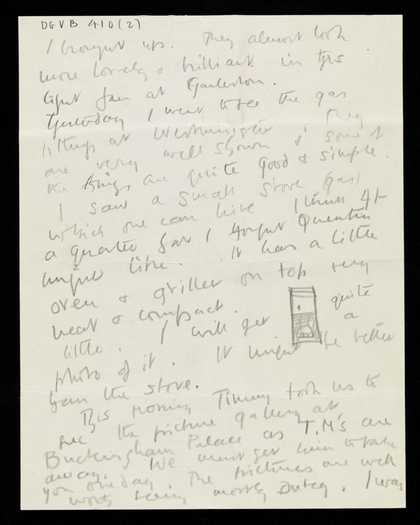 DGVB 410(2)
I brought ups. They almost look
more lovely & brilliant in this
light than at Garleston.
Yesterday I went to see the gas
fittings at Westminster & they
are very well shown & some of
the things are quite good & simple.
I saw a small stove (gas)
which one can hire I think 4/-
a quarter for I thought Quentin
might like. It has a little
oven & griller on top very
neat & compact. quite
little. I will get a
photo of it. It might be better
than the stove.
This morning Timmy took us to
see the picture gallery at
Buckingham Palace as T.M's are
away. We must get him to take
you one day. The pictures are well
worth seeing mostly Dutch. I was